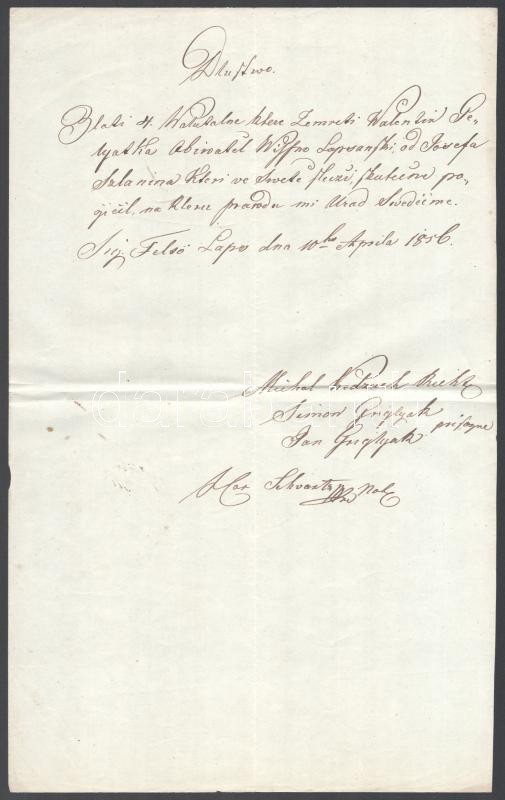 Dluſtwo.
Zlati 4. Walutalne ktere Zemreti Walentin Pe-
tyatka Obiwatel Wiſſno Lapsanski, od Jozefa
Szlanina kteri ve Swete ſluzi, ſkutecne po-
zicil, na kteru prawdu mi Urad Swedčime.
Sig. Felsö Laps dna 10ho Aprila 1856.
Michal Richt
Simon Griglyak
Jan Griglyak priſazne
Schvartz Not